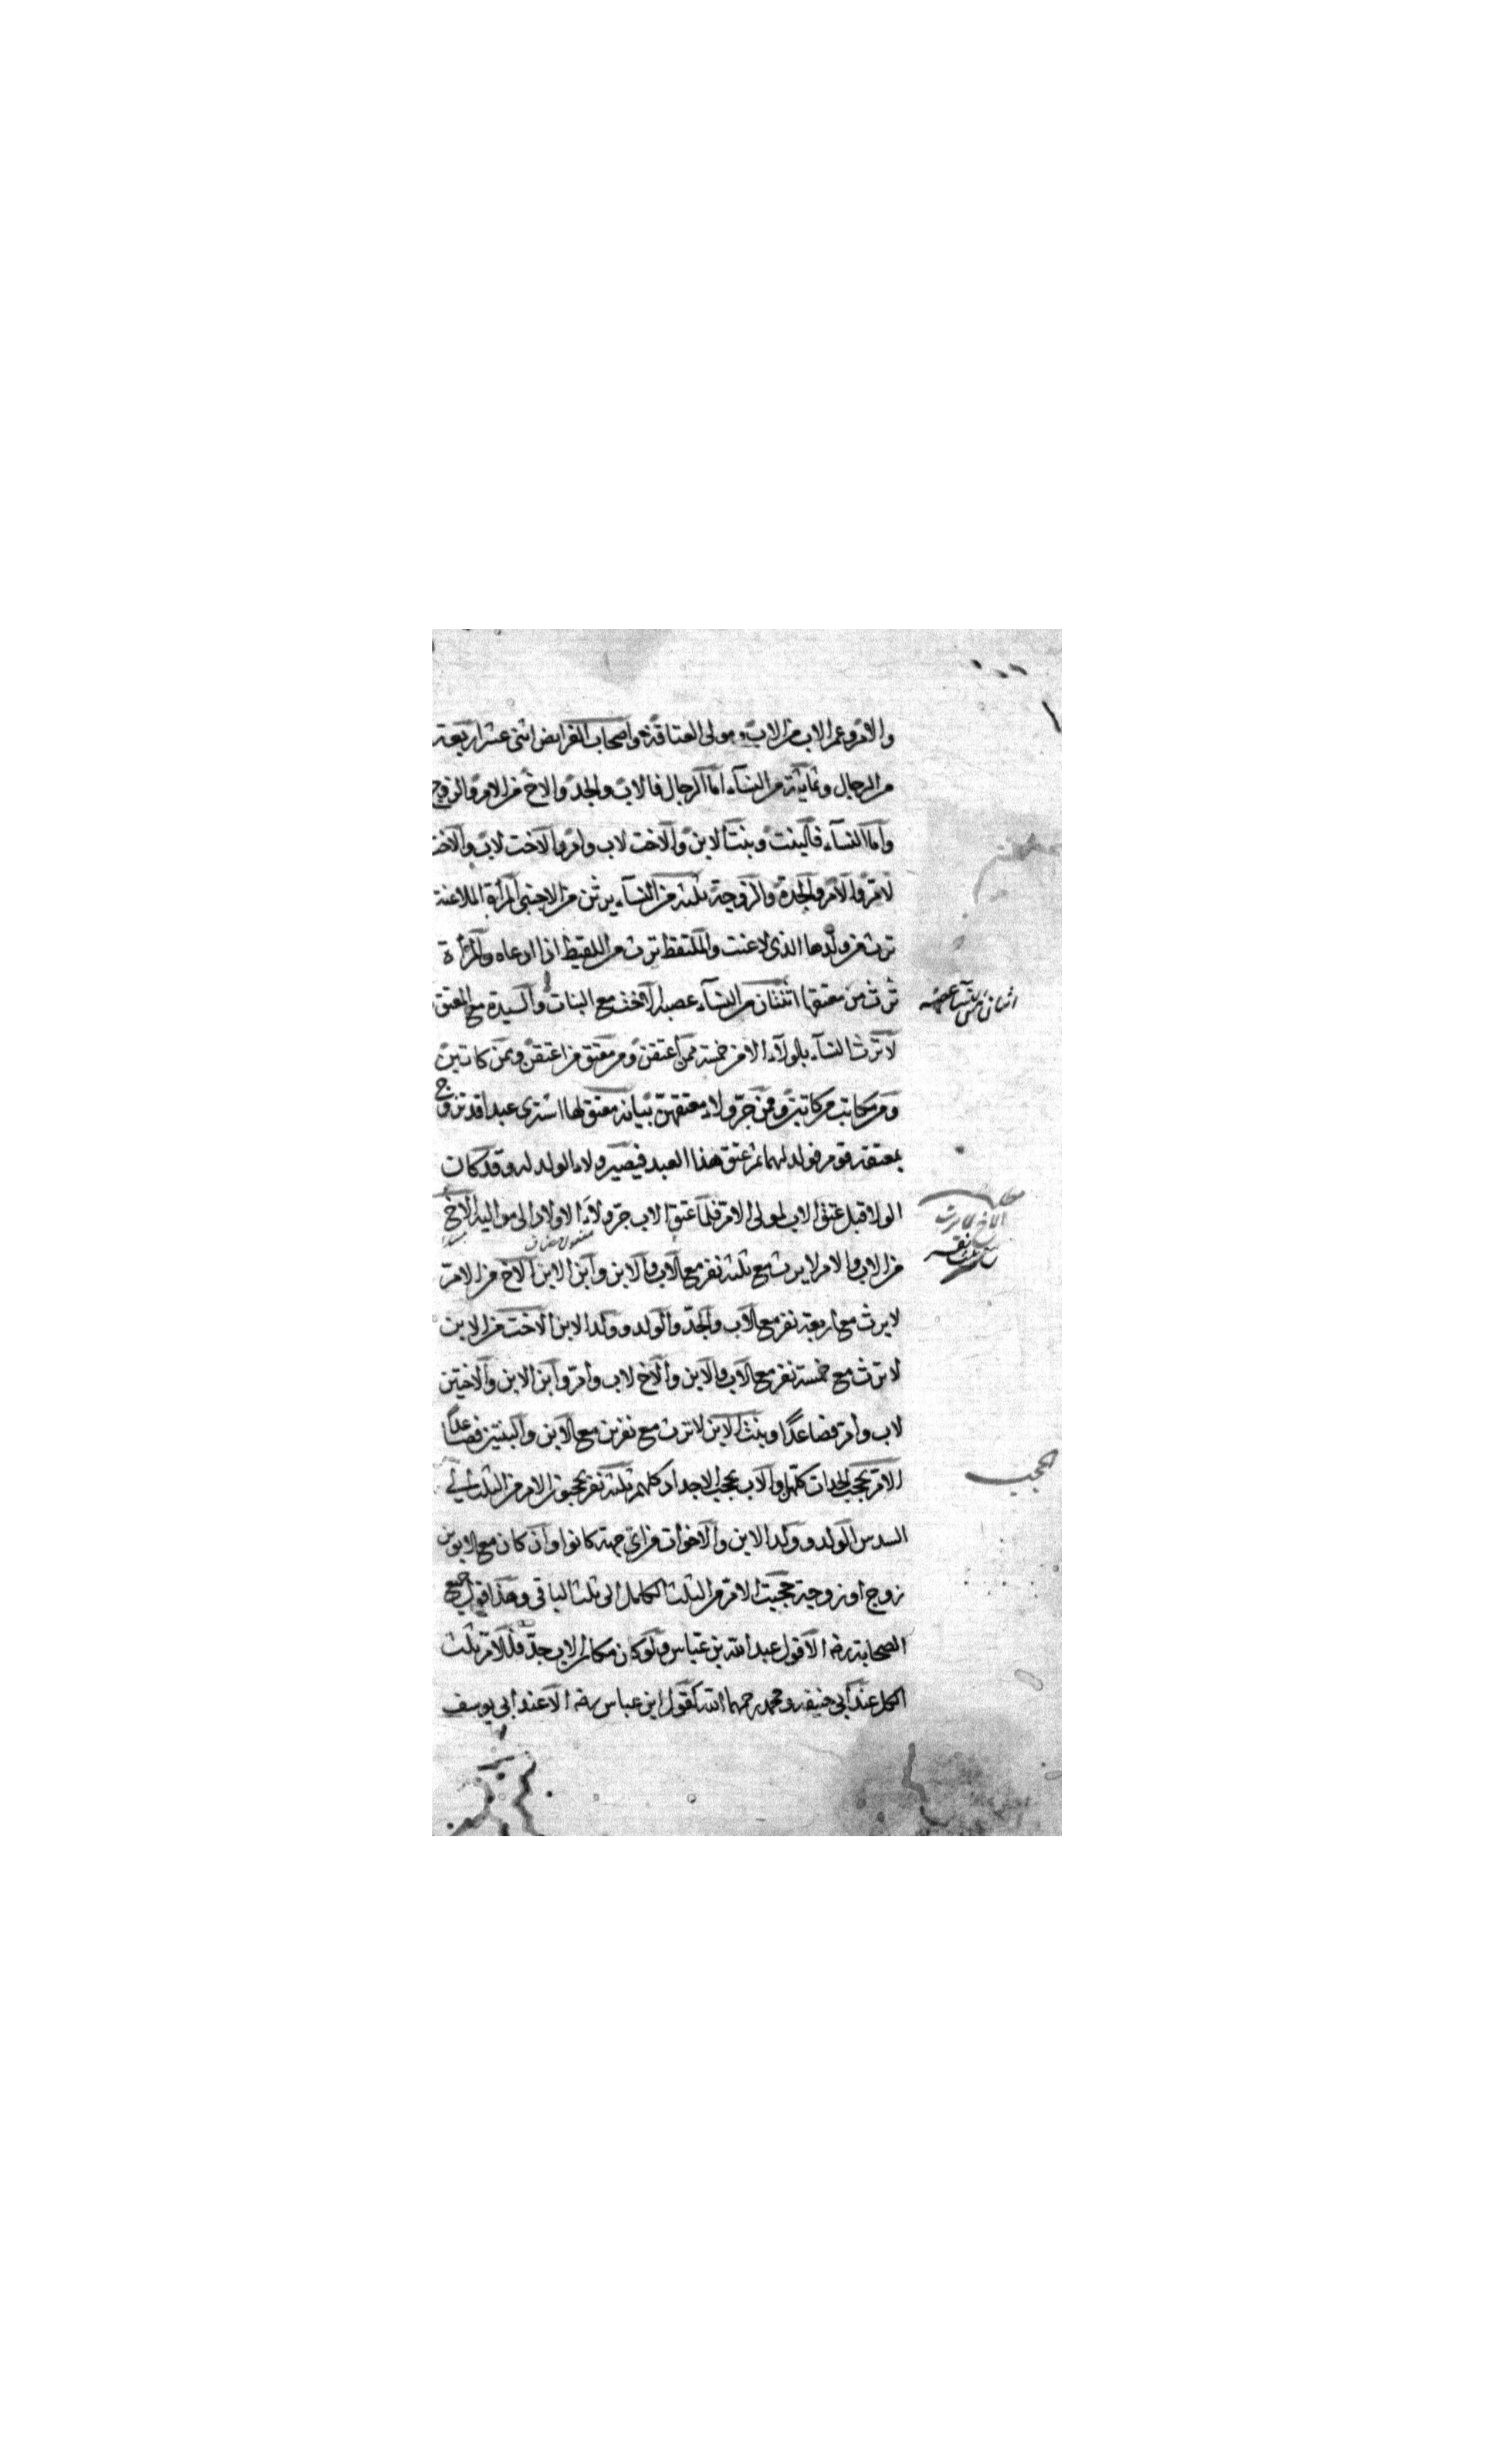 والام وعم الاب من الاب ومولى العتاقة واصحاب الفرايض اثنى عشر اربعة
من الرجال وثمانية من النسآء اما الرجال فالاب والجد والاخ من الام والزوج
واما النسآء فالبنت وبنت الابن والاخت لاب وام والاخت لاب والاخت
لام والام والجدة والزوجة ثلثة من النسآء يرثن من الاجنبي المرأة الملاعنة
ترث من ولدها الذي لاعنت والملتقط ترث من اللقيط اذا ادعاه والمرأة
ترث من معتقها اثنتان من النسآء عصبة الاخت مع البنات والسيدة مع المعتق
لا ترث النسآء بالولآء الا من خمسة ممن اعتقن ومن معتق من اعتقن وممن كاتبن
ومن مكاتب من كاتبن وممن جر ولاء معتقهن بيانه معتق لها اشترى عبدا قد تزوج
بمعتقة قوم فولد لهما ثم عتق هذا العبد فيصير ولاء الولد له وقد كان
الولا قبل عتق الاب لمولى الام فلما عتق الاب جر ولاء الاولاد الى مواليه الاخ
من الاب والام لا يرث مع ثلثة نفر مع الاب والابن وابن الابن الاخ من الام
لا يرث مع اربعة نفر مع الاب والجد والولد وولد الابن الاخت من الابن
لا ترث مع خمسة نفر مع الاب والابن والاخ لاب وام وابن الابن والاختين
لاب وام فصاعدا وبنت الابن لا ترث مع نفرين مع الابن والبنتين فصاعدا
الام تحجب الجدات كلهن والاب يحجب الاجداد كلهم ثلثة نفر يحجبون الام من الثلث الى
السدس الولد وولد الابن والاخوات من اي جهة كانوا وان كان مع الابوين
زوج او زوجة حجبت الام من الثلث الكامل الى ثلث الباقي وهذا قول جميع
الصحابة رضه الا قول عبد الله بن عباس ولو كان مكان الاب جد فللام ثلث
الكل عند ابي حنيفة ومحمد رحمهما الله كقول ابن عباس رضه الا عند ابي يوسف
اثنتان من النسآء عصبة
مطلب
الاخ لا يرث
مع ثلثة نفر
الحجب